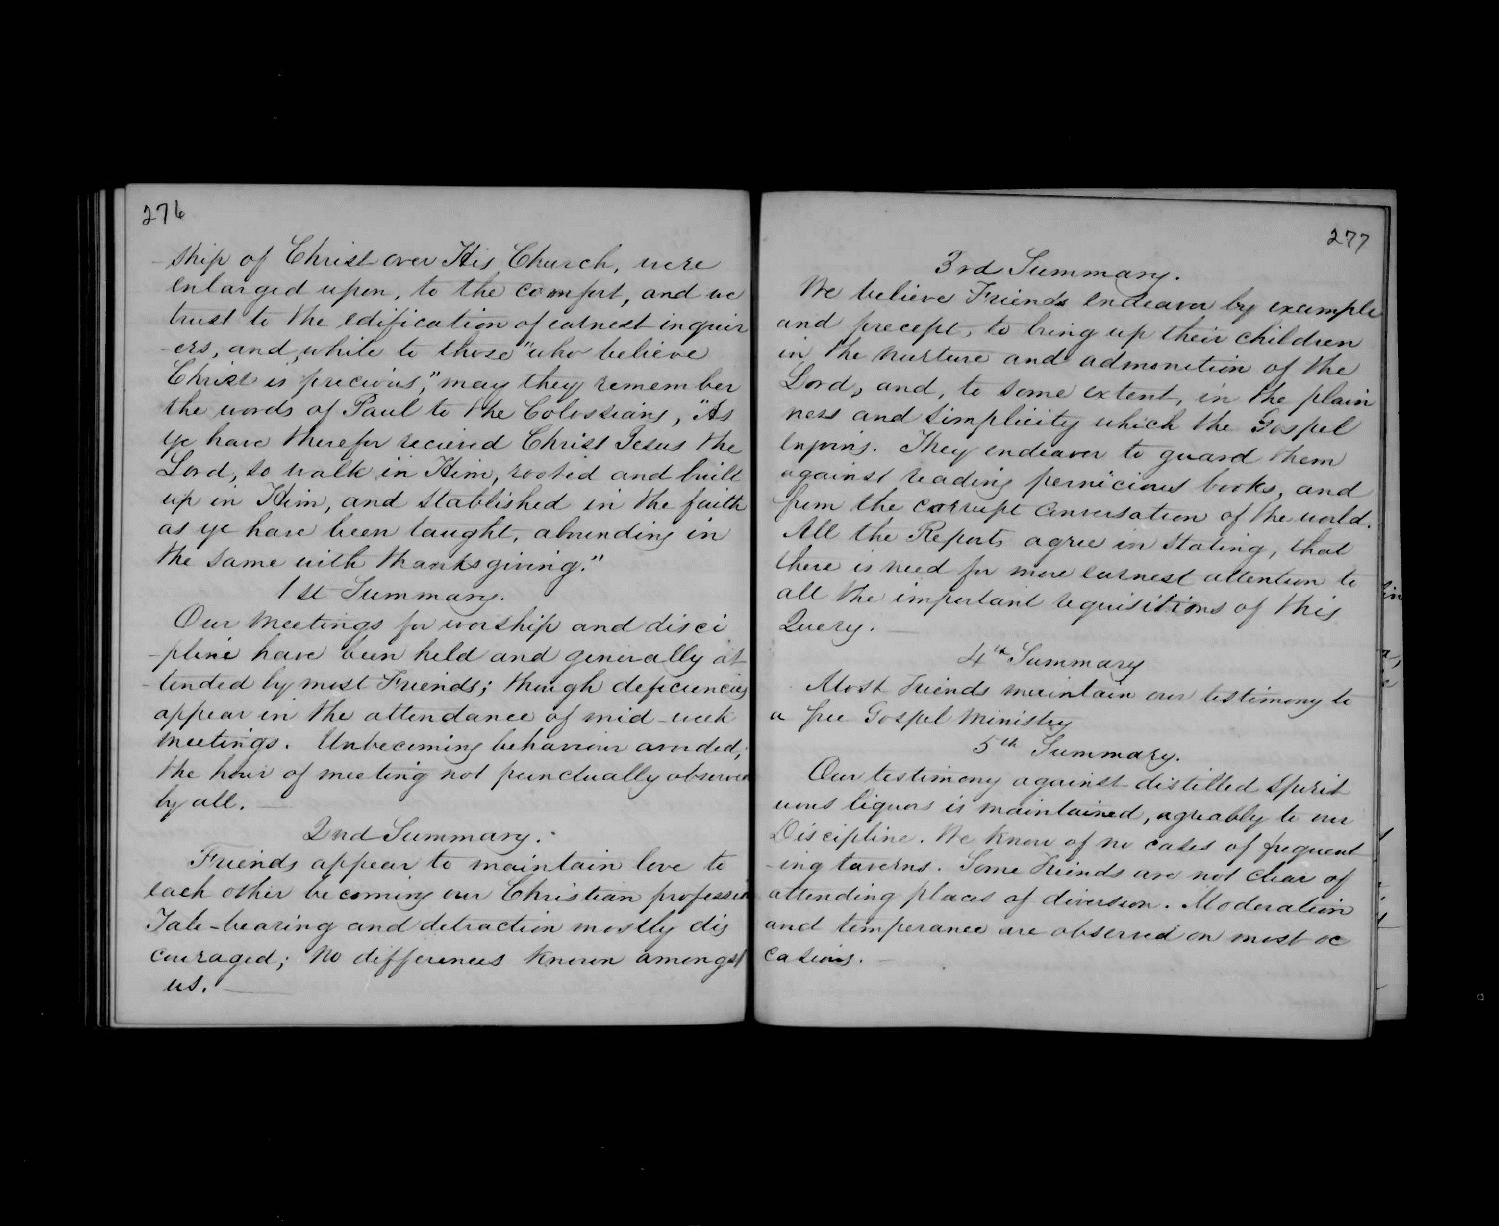 276
-ship of Christ over His Church, were
enlarged upon, to the comfort, and we
trust to the edification of earnest inquir
-ers, and, while to those "who believe
Christ is precious," may they remember
the words of Paul to the Colossians, "As
ye have therefor recieved Christ Jesus the
Lord, so walk in Him, rooted and built
up in Him, and stablished in the faith
as ye have been taught, abounding in
the same with thanksgiving."
1st Summary.
Our meetings for worship and disci
-pline have been held and generally at
-tended by most Friends; though deficiencies
appear in the attendance of mid-week
meetings. Unbecoming behaviour avoided;
the hour of meeting not punctually observed
by all.
2nd Summary.
Friends appear to maintain love to
each other becoming our Christian profession
Tale-bearing and detraction mostly dis
couraged; no differences known amongst
us.
277
3rd Summary.
We believe Friends endeavor by example
and precept, to bring up their children
in the nurture and admonition of the
Lord, and, to some extent, in the plain
ness and simplicity which the Gospel
enjoins. They endeavor to guard them
against reading pernicious books, and
from the corrupt conversation of the world.
All the Reports agree in stating, that
there is need for more earnest attention to
all the important requisitions of this
Query.
4th Summary
Most Friends maintain our testimony to
a free Gospel ministry
5th Summary.
Our testimony against distilled spirit
uous liquors is maintained, agreably to our
Discipline. We know of no cases of frequent
-ing taverns. Some Friends are not clear of
attending places of diversion. Moderation
and temperance are observed on most oc
casions.